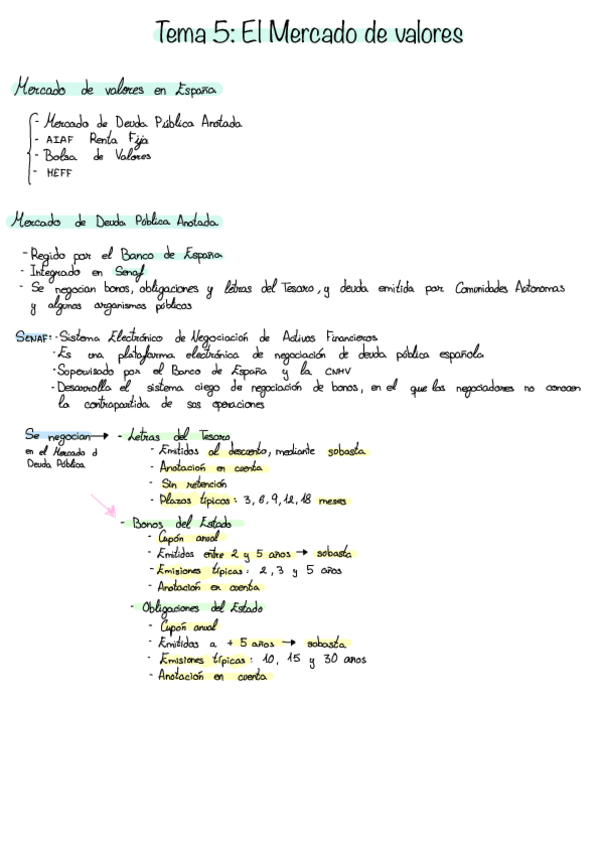 Tema 5: El Mercado de valores
Mercado de valores en España
- Mercado de Deuda Pública Anotada
- AIAF Renta Fija
- Bolsa de Valores
- MEFF
Mercado de Deuda Pública Anotada
- Regido por el Banco de España
- Integrado en Senaf
- Se negocian bonos, obligaciones y letras del Tesoro, y deuda emitida por Comunidades Autonomas
y algunos organismos públicos
SENAF: · Sistema Electrónico de Negociación de Activos Financieros
· Es una plataforma electrónica de negociación de deuda pública española
· Supervisado por el Banco de España y la CNMV
· Desarrolla el sistema ciego de negociación de bonos, en el que los negociadores no conocen
la contrapartida de sus operaciones
Se negocian → - Letras del Tesoro
en el Mercado d
Deuda Pública
- Emitidos al descuento, mediante subasta
- Anotación en cuenta
- Sin retención
- Plazos típicos: 3, 6, 9, 12, 18 meses
- Bonos del Estado
- Cupón anual
- Emitidos entre 2 y 5 años → subasta
- Emisiones típicas: 2, 3 y 5 años
- Anotación en cuenta
- Obligaciones del Estado
- Cupón anual
- Emitidos a + 5 años → subasta
- Emisiones típicas: 10, 15 y 30 anos
- Anotación en cuenta